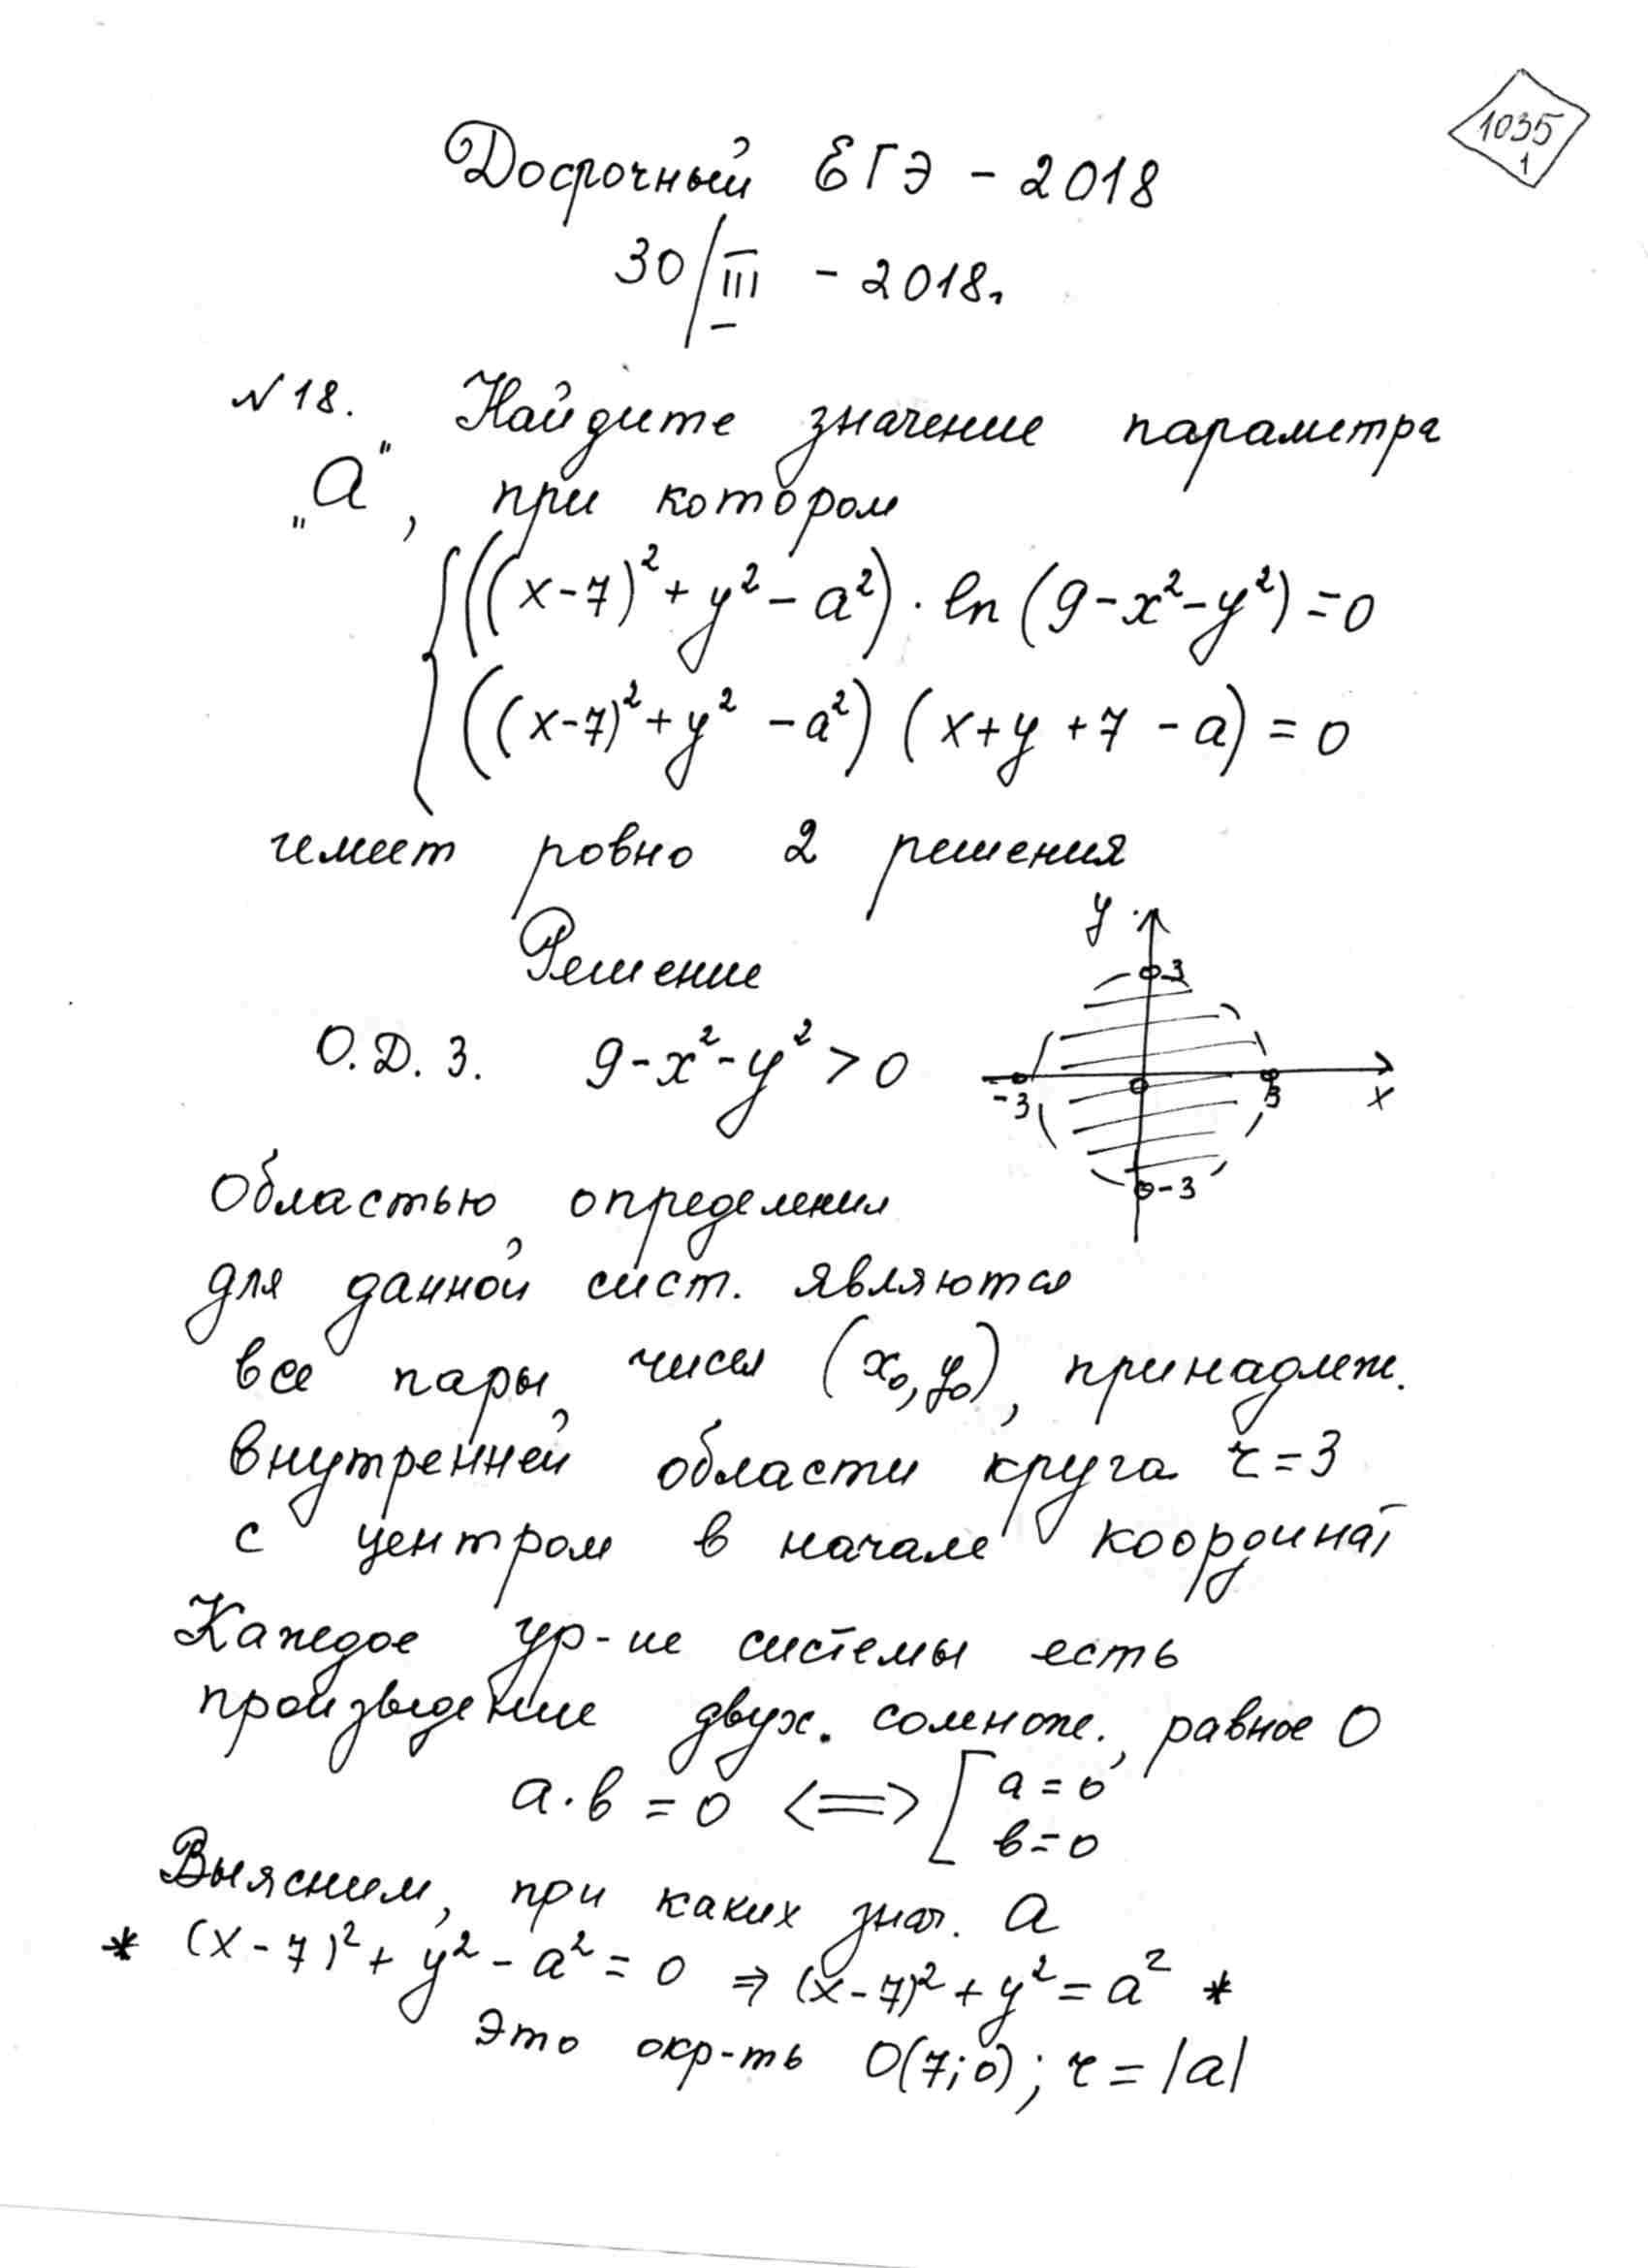 1035
1
Досрочный ЕГЭ - 2018
30/III - 2018г.
N18. Найдите значение параметра
„а“, при котором
((x-7)²+y²-a²)·ln(9-x²-y²)=0
((x-7)²+y²-a²)(x+y+7-a)=0
имеет ровно 2 решения
Решение
y
3
О.Д.З. 9-x²-y²>0
-3 0 3 x
-3
Областью определения
для данной сист. являются
все пары чисел (x₀,y₀), принадлеж.
внутренней области круга r=3
с центром в начале координат
Каждое ур-ие системы есть
произведение двух. сомнож., равное 0
a·b=0 <=> [a=0
b=0
Выясним, при каких знач. a
* (x-7)²+y²-a²=0 ⇒ (x-7)²+y²=a² *
Это окр-ть O(7;0); r=|a|